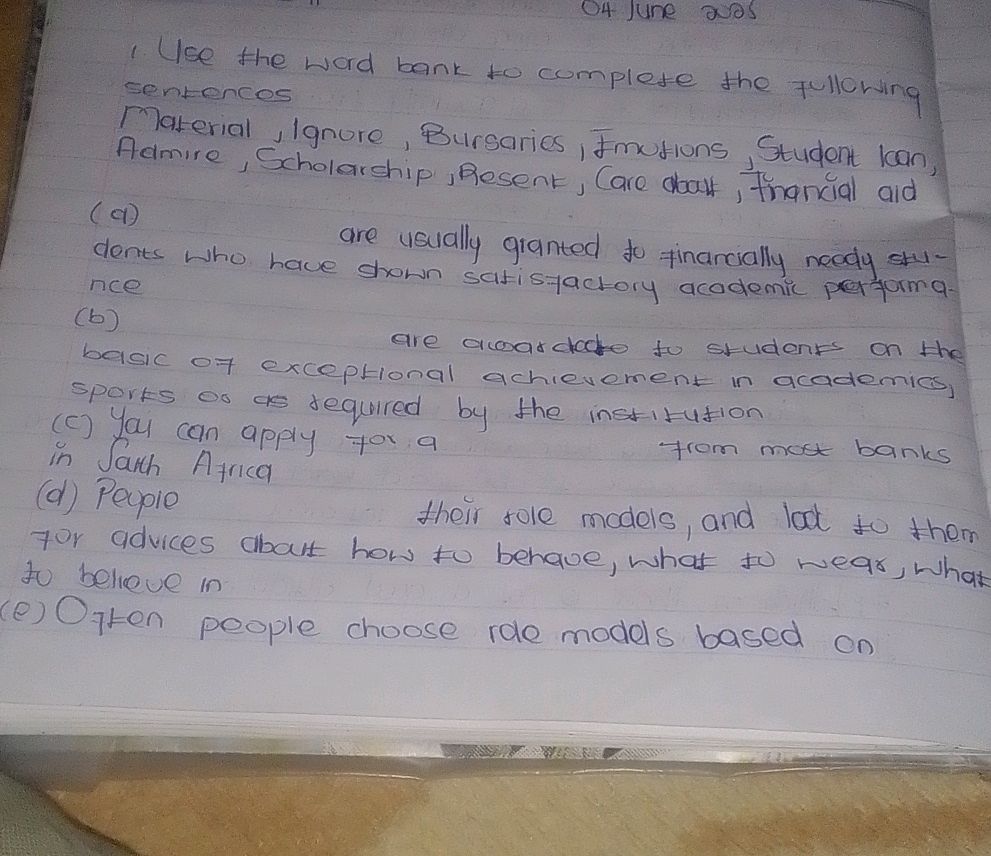 04 June 2025
1. Use the word bank to complete the following
sentences
Material, Ignore, Bursaries, Emotions, Student loan,
Admire, Scholarship, Resent, Care about, financial aid
(a) are usually granted to financially needy stu-
dents who have shown satisfactory academic performa-
nce
(b) are to students on the
basic of exceptional achievement in academics,
sports or as required by the institution
(c) You can apply for a from most banks
in South Africa
(d) People their role models, and look to them
for advices about how to behave, what to wear, what
to believe in
(e) Often people choose role models based on